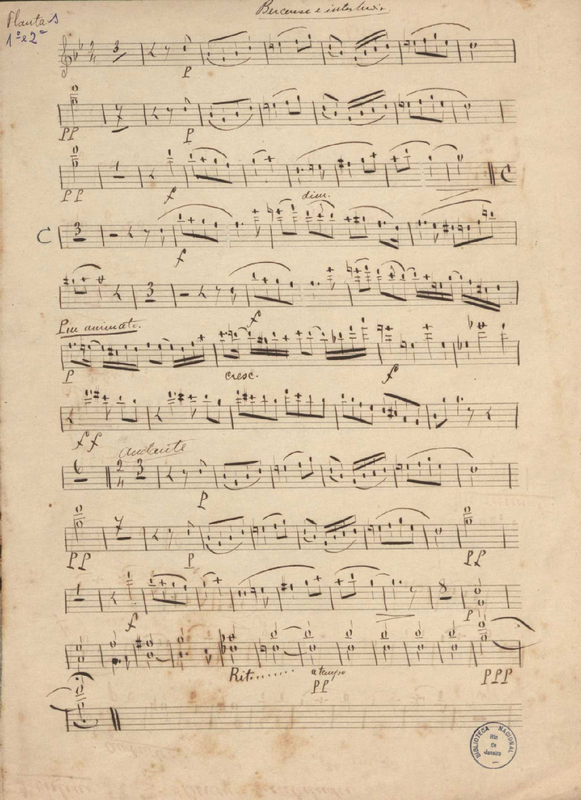 Flautas
1ª e 2ª
Berceuse e interludio
2/4 3
P
PP 7 P
PP 1 f dim. C
C 3 f
3
Piu animato.
P cresc. f f
ff
Andante
6 2/4 3 P
PP 7 P PP
1 f 8 P
Rit........ a tempo PP PPP
BIBLIOTECA NACIONAL
Rio de Janeiro